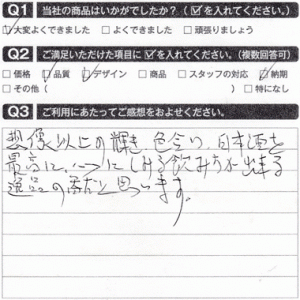 Q1 当社の商品はいかがでしたか?(☑を入れてください。)
☑大変よくできました □よくできました □頑張りましょう
Q2 ご満足いただけた項目に☑を入れてください。(複数回答可)
□価格 ☑品質 ☑デザイン □商品 □スタッフの対応 ☑納期
□その他( ) □特になし
Q3 ご利用にあたってご感想をおよせください。
想像以上の輝き、色合い、日本酒を
最高に 飲み方が出来る
逸品の 思います。